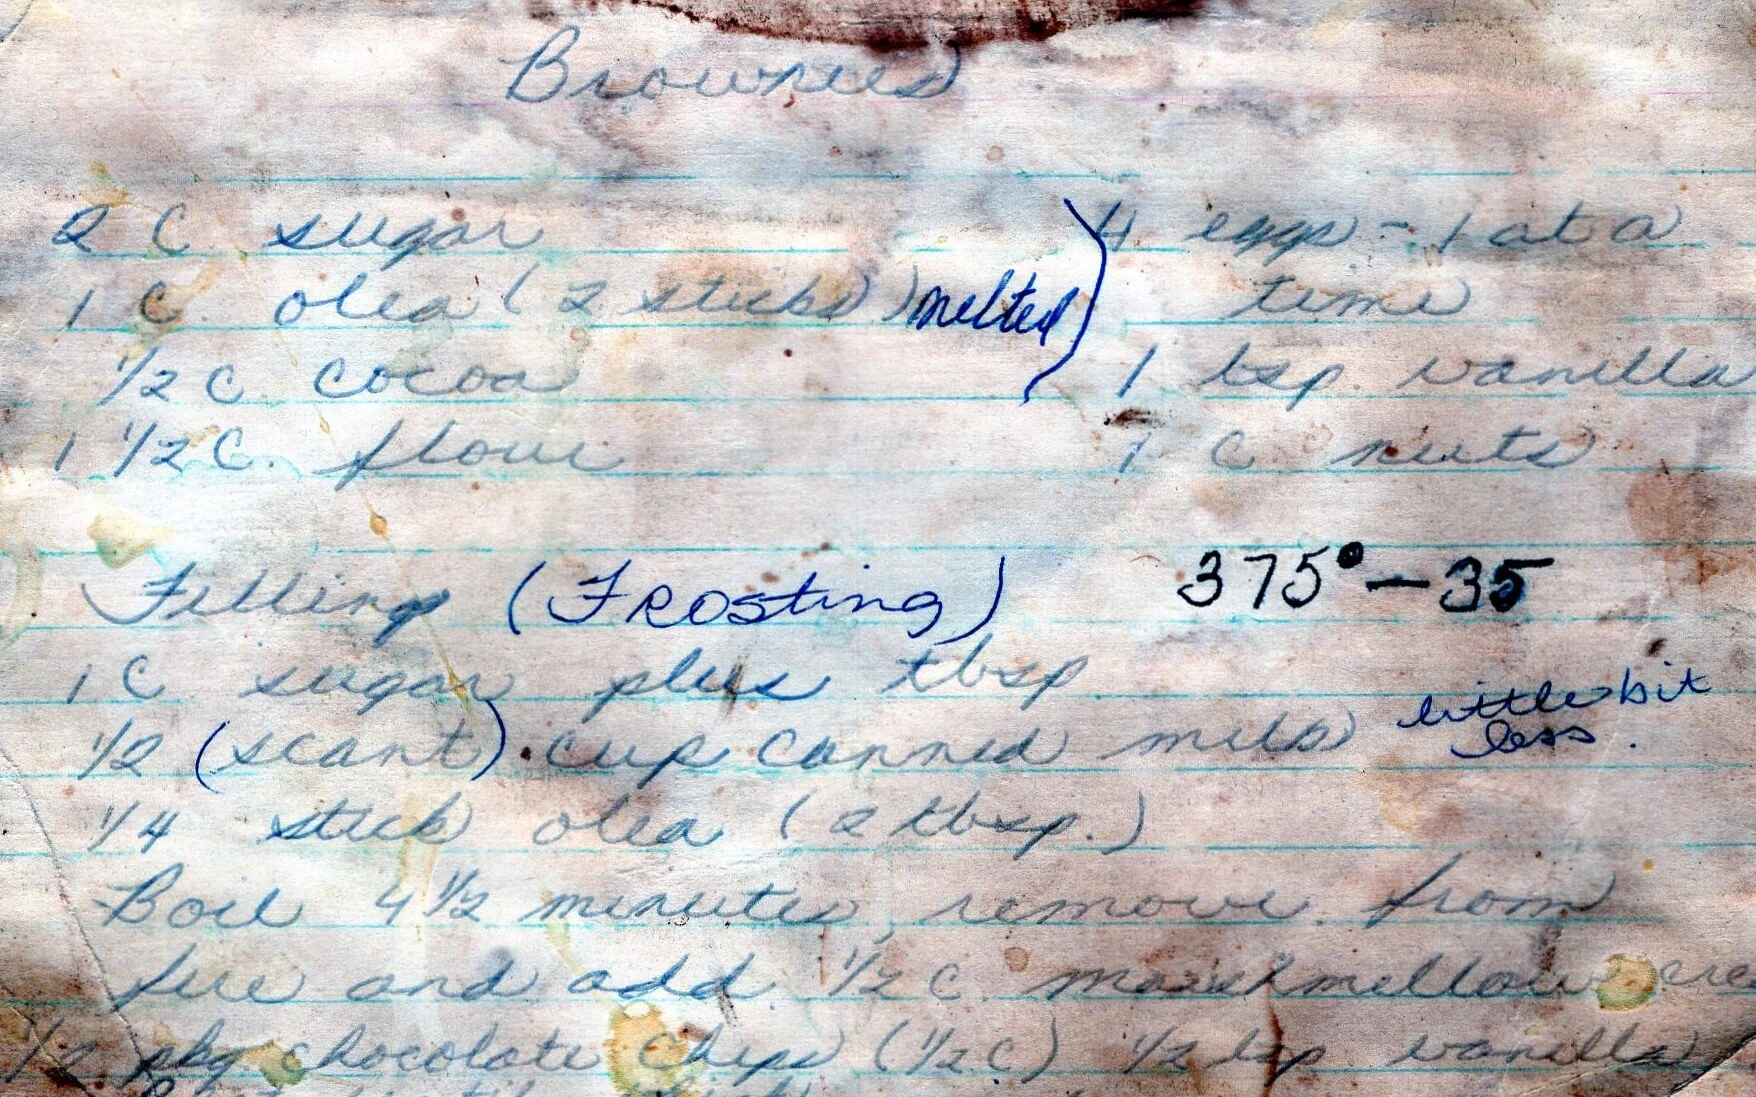 Brownies
2 C. sugar
1 C. olea (2 sticks) melted
1/2 C cocoa
1 1/2 C. flour
4 eggs - 1 at a
time
1 tsp. vanilla
1 C nuts
375° - 35
Filling (Frosting)
1 C sugar plus tbsp
1/2 (scant) cup canned milk little bit
less.
1/4 stick olea (2 tbsp.)
Boil 4 1/2 minutes remove from
fire and add 1/2 c. marshmellow cre
1/2 pkg chocolate chips (1/2 C) 1/2 tsp vanilla